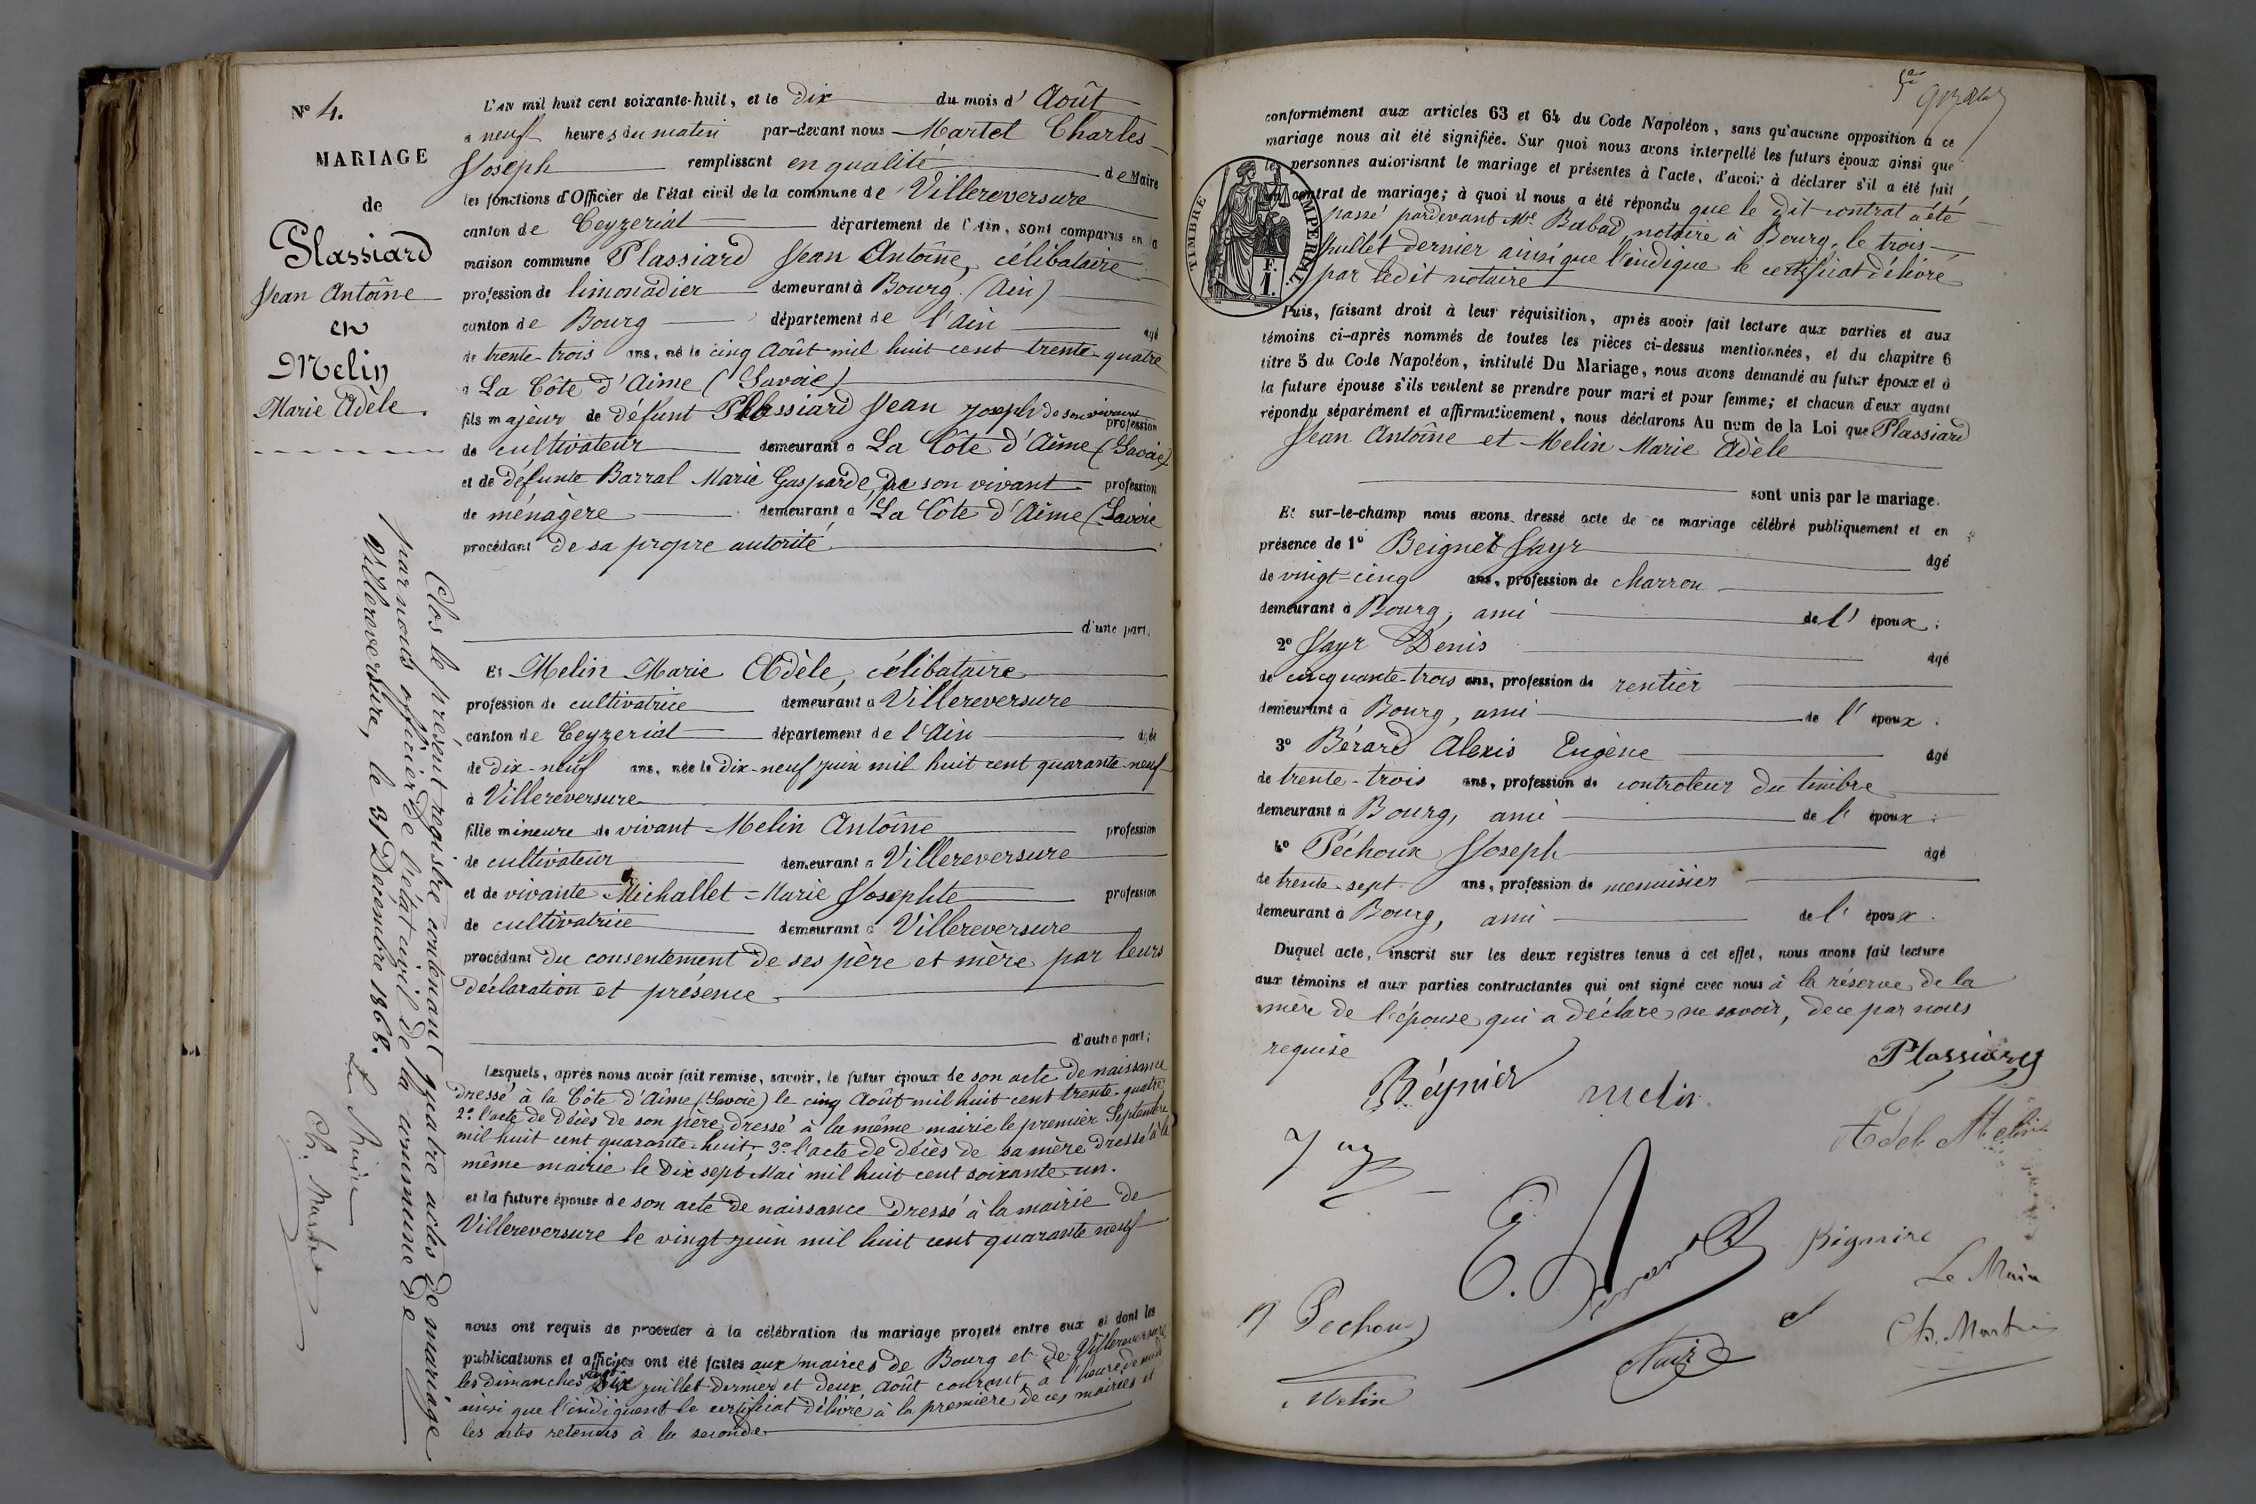 N° 4.
MARIAGE
de
Plassiard
Jean Antoine
en
Melin
Marie Adèle.
L'AN mil huit cent soixante-huit, et le dix du mois d' Août
a neuf heures du matin par-devant nous Martel Charles
Joseph remplissant en qualité de Maire
les fonctions d'Officier de l'état civil de la commune de Villereversure
canton de Ceyzeriat département de l'Ain, sont comparus en la
maison commune Plassiard Jean Antoine, célibataire
profession de limonadier demeurant à Bourg (Ain)
canton de Bourg département de l'Ain agé
de trente-trois ans, né le cinq Août mil huit cent trente-quatre
a La Côte d'Aime (Savoie)
fils majeur de défunt Plassiard Jean Joseph de son vivant profession
de cultivateur demeurant a La Côte d'Aime (Savoie)
et de défunte Barral Marie Gasparde, de son vivant profession
de ménagère demeurant a La Côte d'Aime (Savoie
procédant de sa propre autorité
d'une part.
Et Melin Marie Adèle, célibataire
profession de cultivatrice demeurant a Villereversure
canton de Ceyzeriat département de l'Ain agée
de dix-neuf ans, née le dix-neuf juin mil huit cent quarante-neuf
à Villereversure
fille mineure de vivant Melin Antoine profession
de cultivateur demeurant a Villereversure
et de vivante Michallet Marie Josephte profession
de cultivatrice demeurant a Villereversure
procédant du consentement de ses père et mère par leurs
déclaration et présence
d'autre part;
Lesquels, après nous avoir fait remise, savoir, le futur époux de son acte de naissance
dressé à la Côte d'Aime (Savoie) le cinq Août mil huit cent trente-quatre,
2° l'acte de décès de son père, dressé à la même mairie le premier Septembre
mil huit cent quarante-huit, 3° l'acte de décès de sa mère dressé à la
même mairie le dix sept Mai mil huit cent soixante-un.
et la future épouse de son acte de naissance dressé à la mairie de
Villereversure le vingt juin mil huit cent quarante neuf
nous ont requis de procéder à la célébration du mariage projeté entre eux et dont les
publications et affiches ont été faites aux mairies de Bourg et de Villereversure
les dimanches juillet dernier et deux Août courant, à l'heure de midi
ainsi que l'indiquent le certificat délivré à la première de ces mairies et
les actes retenus à la seconde
Clos le présent registre contenant quatre actes de mariage
par nous officier de l'état civil de la commune de
Villereversure, le 31 Décembre 1868.
Le Maire
Ch. Martel
conformément aux articles 63 et 64 du Code Napoléon, sans qu'aucune opposition à ce
mariage nous ait été signifiée. Sur quoi nous avons interpellé les futurs époux ainsi que
les personnes autorisant le mariage et présentes à l'acte, d'avoir à déclarer s'il a été fait
un contrat de mariage; à quoi il nous a été répondu que le dit contrat a été
passé pardevant Me Babad, notaire à Bourg, le trois
Juillet dernier ainsi que l'indique le certificat délivré
par ledit notaire
TIMBRE IMPERIAL
F.
1.
Puis, faisant droit à leur réquisition, après avoir fait lecture aux parties et aux
témoins ci-après nommés de toutes les pièces ci-dessus mentionnées, et du chapitre 6
titre 5 du Code Napoléon, intitulé Du Mariage, nous avons demandé au futur époux et à
la future épouse s'ils veulent se prendre pour mari et pour femme; et chacun d'eux ayant
répondu séparément et affirmativement, nous déclarons Au nom de la Loi que Plassiard
Jean Antoine et Melin Marie Adèle
sont unis par le mariage.
Et sur-le-champ nous avons dressé acte de ce mariage célébré publiquement et en
présence de 1° Beignet Jayr agé
de vingt-cinq ans, profession de charron
demeurant à Bourg, ami de l' époux;
2° Jayr Denis agé
de cinquante-trois ans, profession de rentier
demeurant à Bourg, ami de l' époux.
3° Bérard Alexis Eugène agé
de trente-trois ans, profession de controleur du timbre
demeurant à Bourg, ami de l' époux;
4° Péchoux Joseph agé
de trente-sept ans, profession de menuisier
demeurant à Bourg, ami de l' époux.
Duquel acte, inscrit sur les deux registres tenus à cet effet, nous avons fait lecture
aux témoins et aux parties contractantes qui ont signé avec nous à la réserve de la
mère de l'épouse qui a déclaré ne savoir, de ce par nous
requise
Plassiard
Melin
Adèle Melin
Le Maire
Ch. Martel
Péchoux
Melin